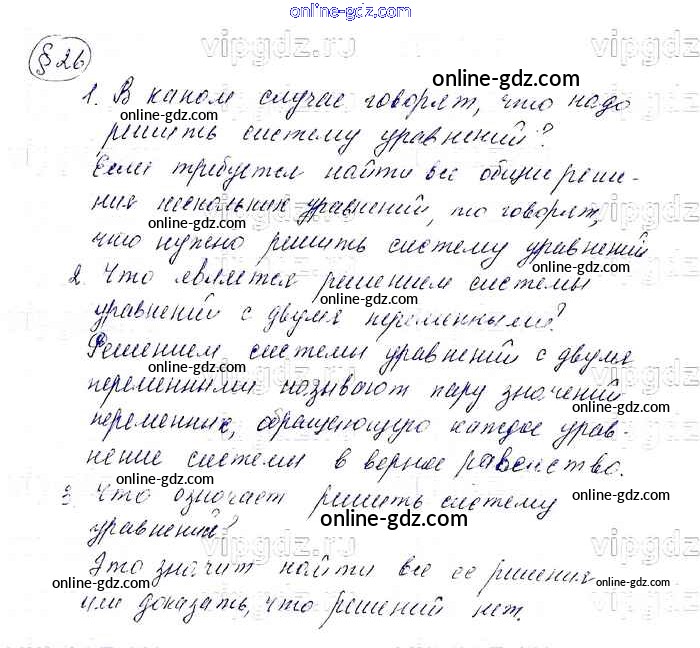 online-gdz.com
§ 26
vipgdz.ru
online-gdz.com
1. В каком случае говорят, что надо
решить систему уравнений?
online-gdz.com
Если требуется найти все общие реше-
ния нескольких уравнений, то говорят,
online-gdz.com
что нужно решить систему уравнений
2. Что является решением системы
online-gdz.com
уравнений с двумя переменными?
Решением системы уравнений с двумя
переменными называют пару значений
online-gdz.com
переменных, обращающую каждое урав-
нение системы в верное равенство.
3. Что означает решить систему
online-gdz.com
уравнений?
Это значит найти все ее решения
online-gdz.com
или доказать, что решений нет.